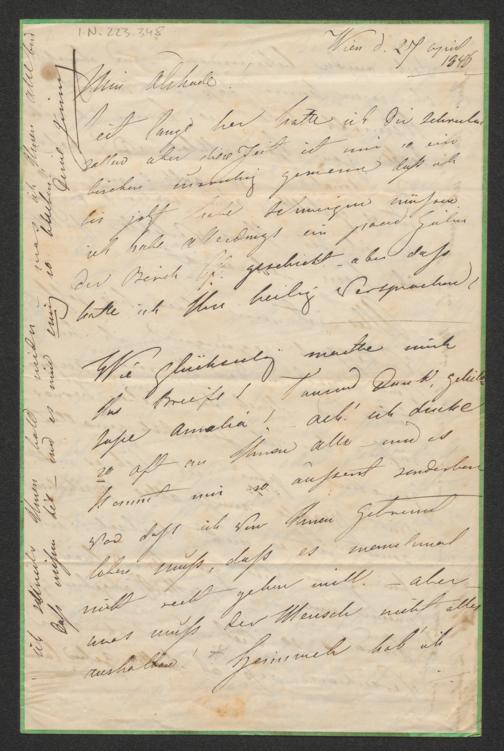 I.N. 223.348
Wien d. 27 april
1846
Mein
Seit lange her hatte ich Dir schreiben
wollen aber diese Zeit ist mir so ein
bischen unruhig gewesen daß ich
bis jetzt habe schweigen müssen
ich habe allerdings ein paar Zeilen
der geschickt – aber daß
hatte ich Ihr heilig versprochen!
Wie glückselig machte mich
Ihr Brief! Tausend Dank! geliebte
süße Amalia! ach! ich denke
so oft an Ihnen alle – und es
kommt mir so äußerst sonderbar
vor daß ich von Ihnen getrennt
leben muß, daß es manchmal
nicht recht gehen will. – aber
was muß der Mensch nicht alles
aushalten! – Heimweh hab' ich
ich Ihnen bald wieder was ich Ihnen alle
daß wissen Sie und es wird ewig so bleiben
Deine Jenny